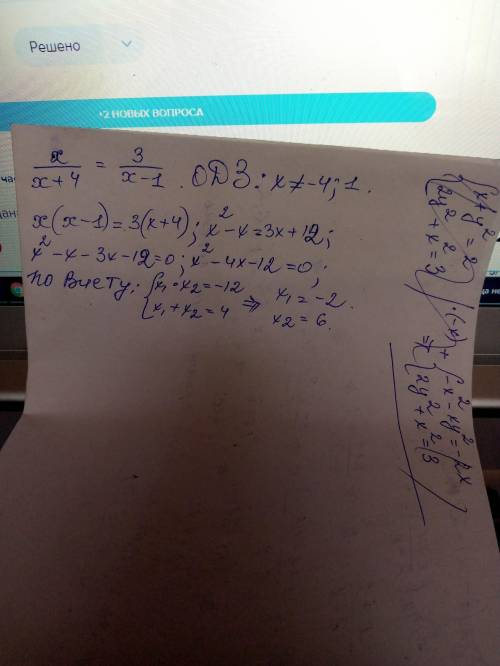 Решено
+2 НОВЫХ ВОПРОСА
x/(x+4) = 3/(x-1). ОДЗ: x≠-4; 1.
x(x-1)=3(x+4); x²-x=3x+12;
x²-x-3x-12=0; x²-4x-12=0;
по Виету: {x₁·x₂=-12 ⇒ x₁=-2.
{x₁+x₂=4 x₂=6.
{x+y²=2 |·(-x) + {-x²-xy²=-2x
{2y²+x²=3 ⇒ {2y²+x²=3